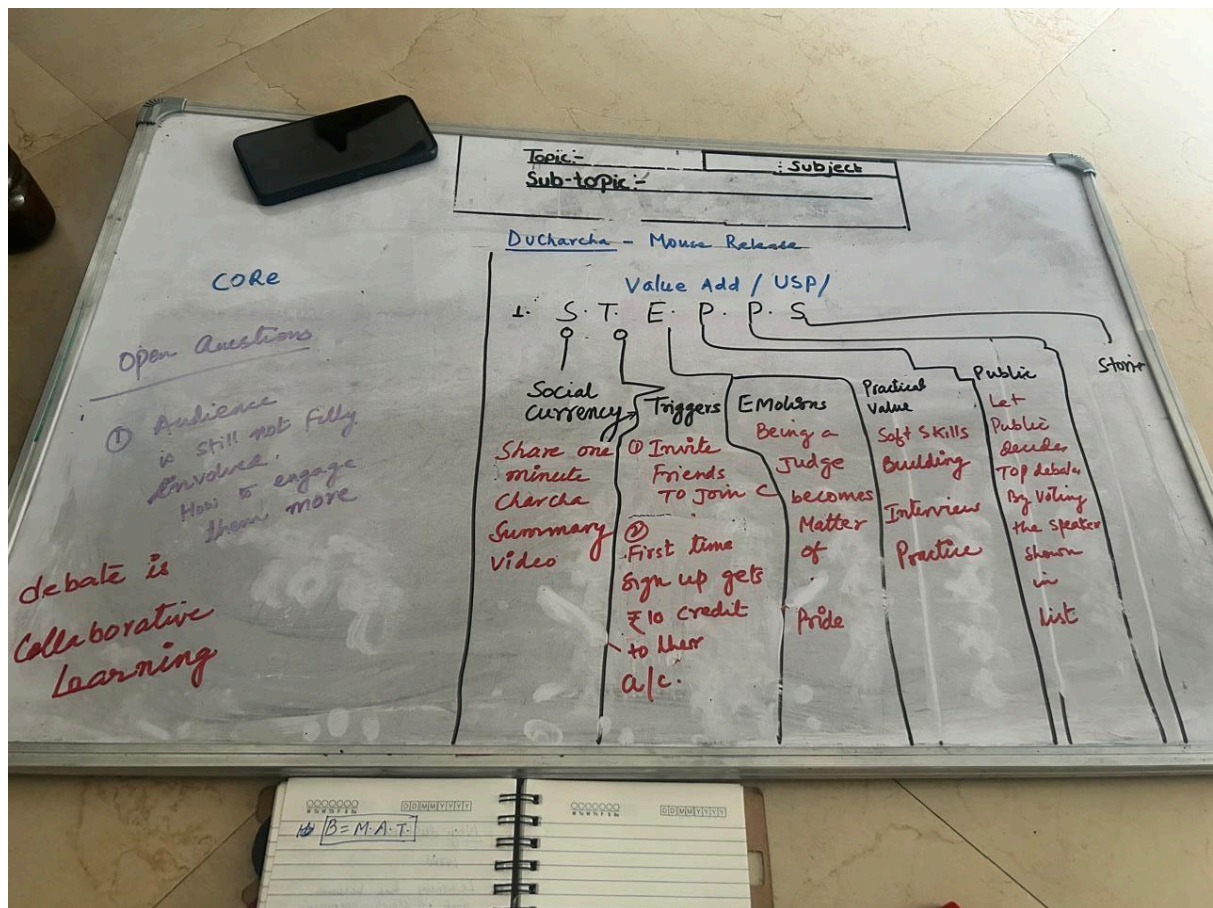 Topic:-
: Subject
Sub-topic:-
Ducharcha - Mouse Release
CORe
Open Questions
① Audience
is still not fully
involved.
How to engage
them more
debate is
Collaborative
Learning
Value Add / USP/
1. S. T. E. P. P. S
Social
Currency
Share one
minute
Charcha
Summary
Video
Triggers
① Invite
Friends
To Join C
②
First time
Sign up gets
₹10 credit
to their
a/c.
EMotions
Being a
Judge
becomes
Matter
of
Pride
Practical
Value
Soft Skills
Building
Interview
Practice
Public
Let
Public
decide
Top debate
By Voting
the speaker
shown
in
list
B = M.A.T.
DDMMYYYY
DDMMYYYY